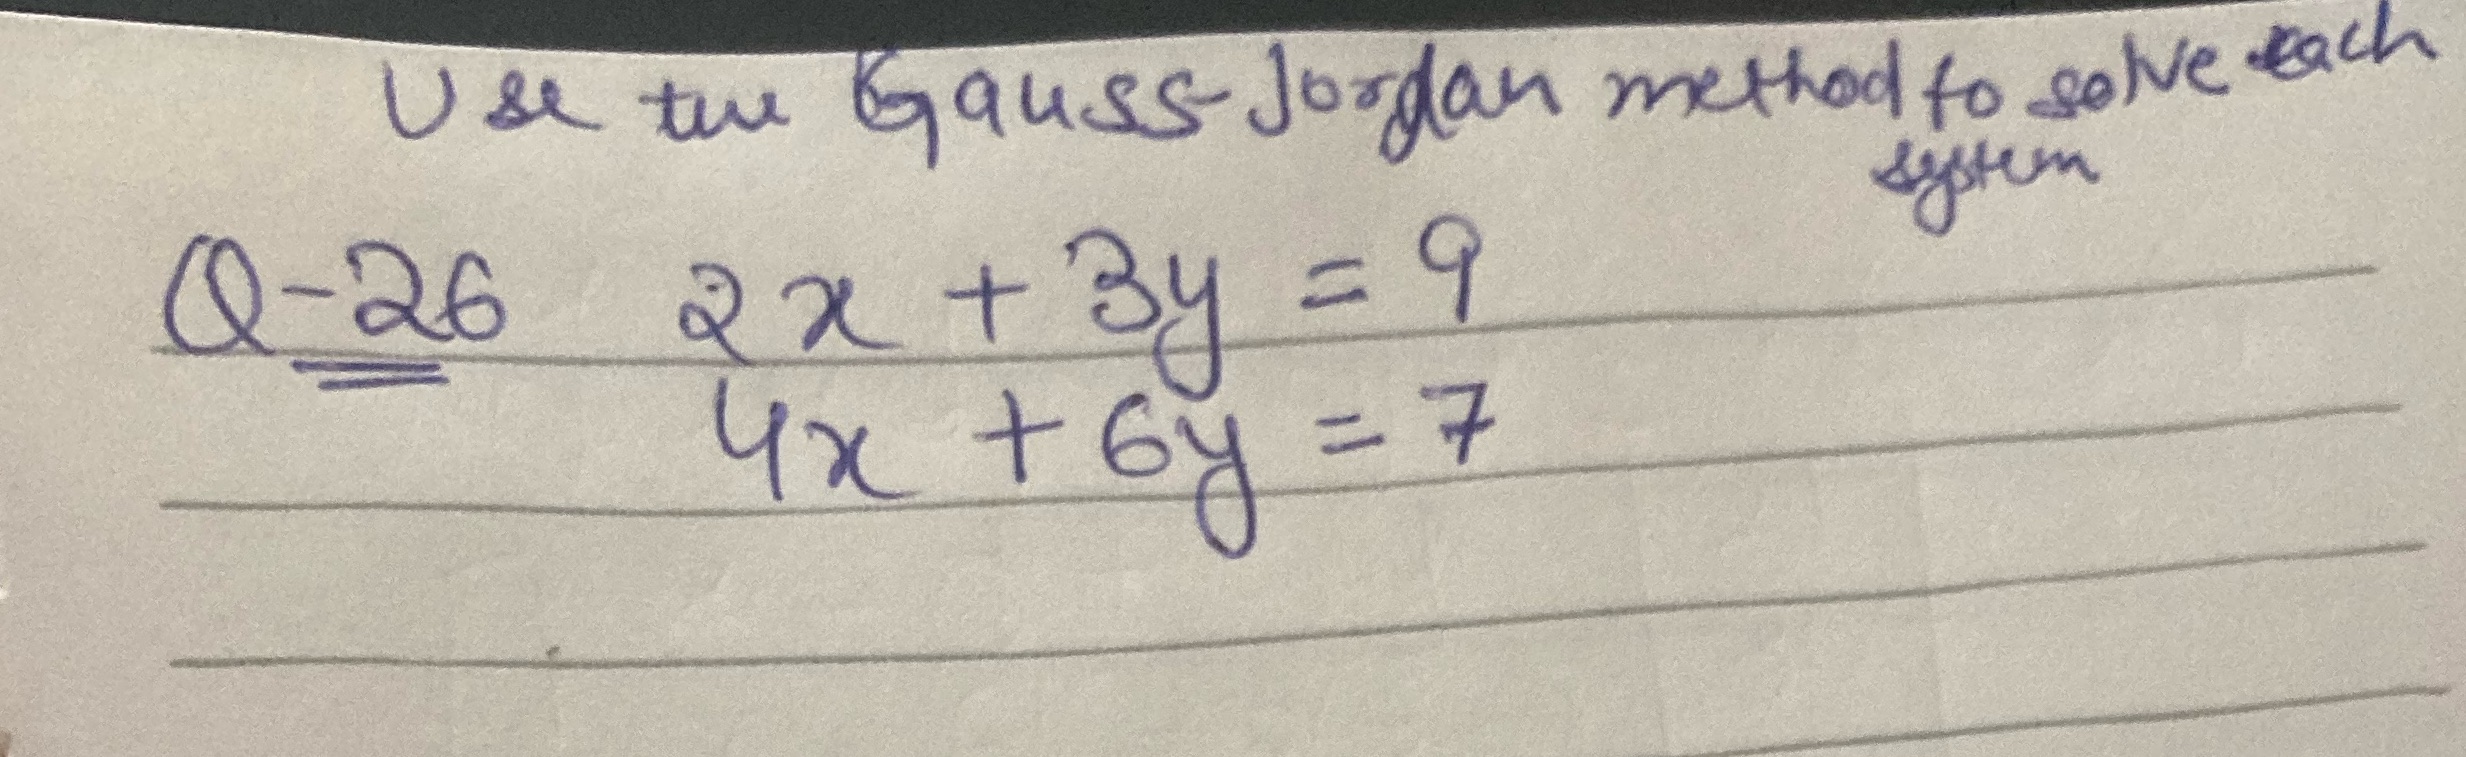 Use the Gauss-Jordan method to solve each
system
Q-26 2x + 3y = 9
4x + 6y = 7